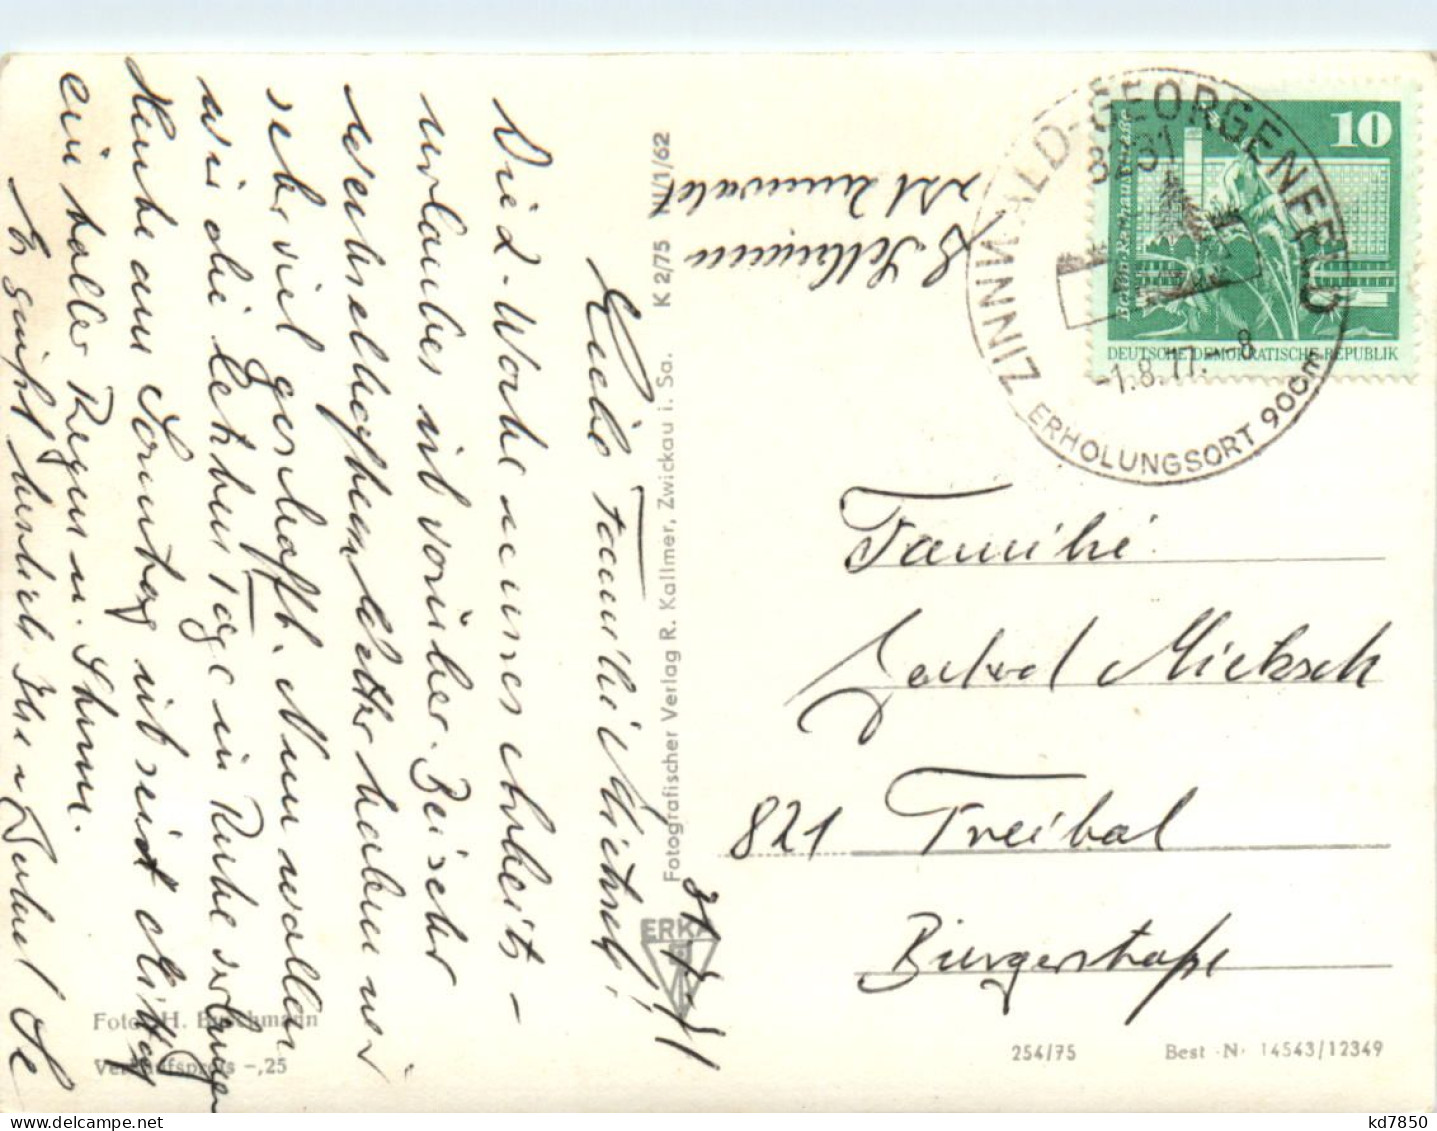 Liebe Familie Mietzsch!
Die 2-Woche unseres Arbeits-
urlaubes ist vorüber. Bei sehr
wechselhaftem Wetter haben wir
sehr viel geschafft. Nun wollen
wir die letzten Tage in Ruhe verbringen
Heute am Sonntag ist seit Mittag
ein toller Regen u. Sturm.
Es grüßt herzlich
31.7.77
ZINNWALD-GEORGENFELD
8231
-1.8.77.-8
ERHOLUNGSORT 900m
10
Berlin·Rathausstraße
DEUTSCHE DEMOKRATISCHE REPUBLIK
Familie
Mietzsch
821 Freital
Bürgerstraße
K 2/75 IV/1/62
Fotografischer Verlag R. Kallmer, Zwickau i. Sa.
ERKA
Foto: H. Buschmann
Verkaufspreis -,25
254/75 Best.-Nr. 14543/12349
kd7850